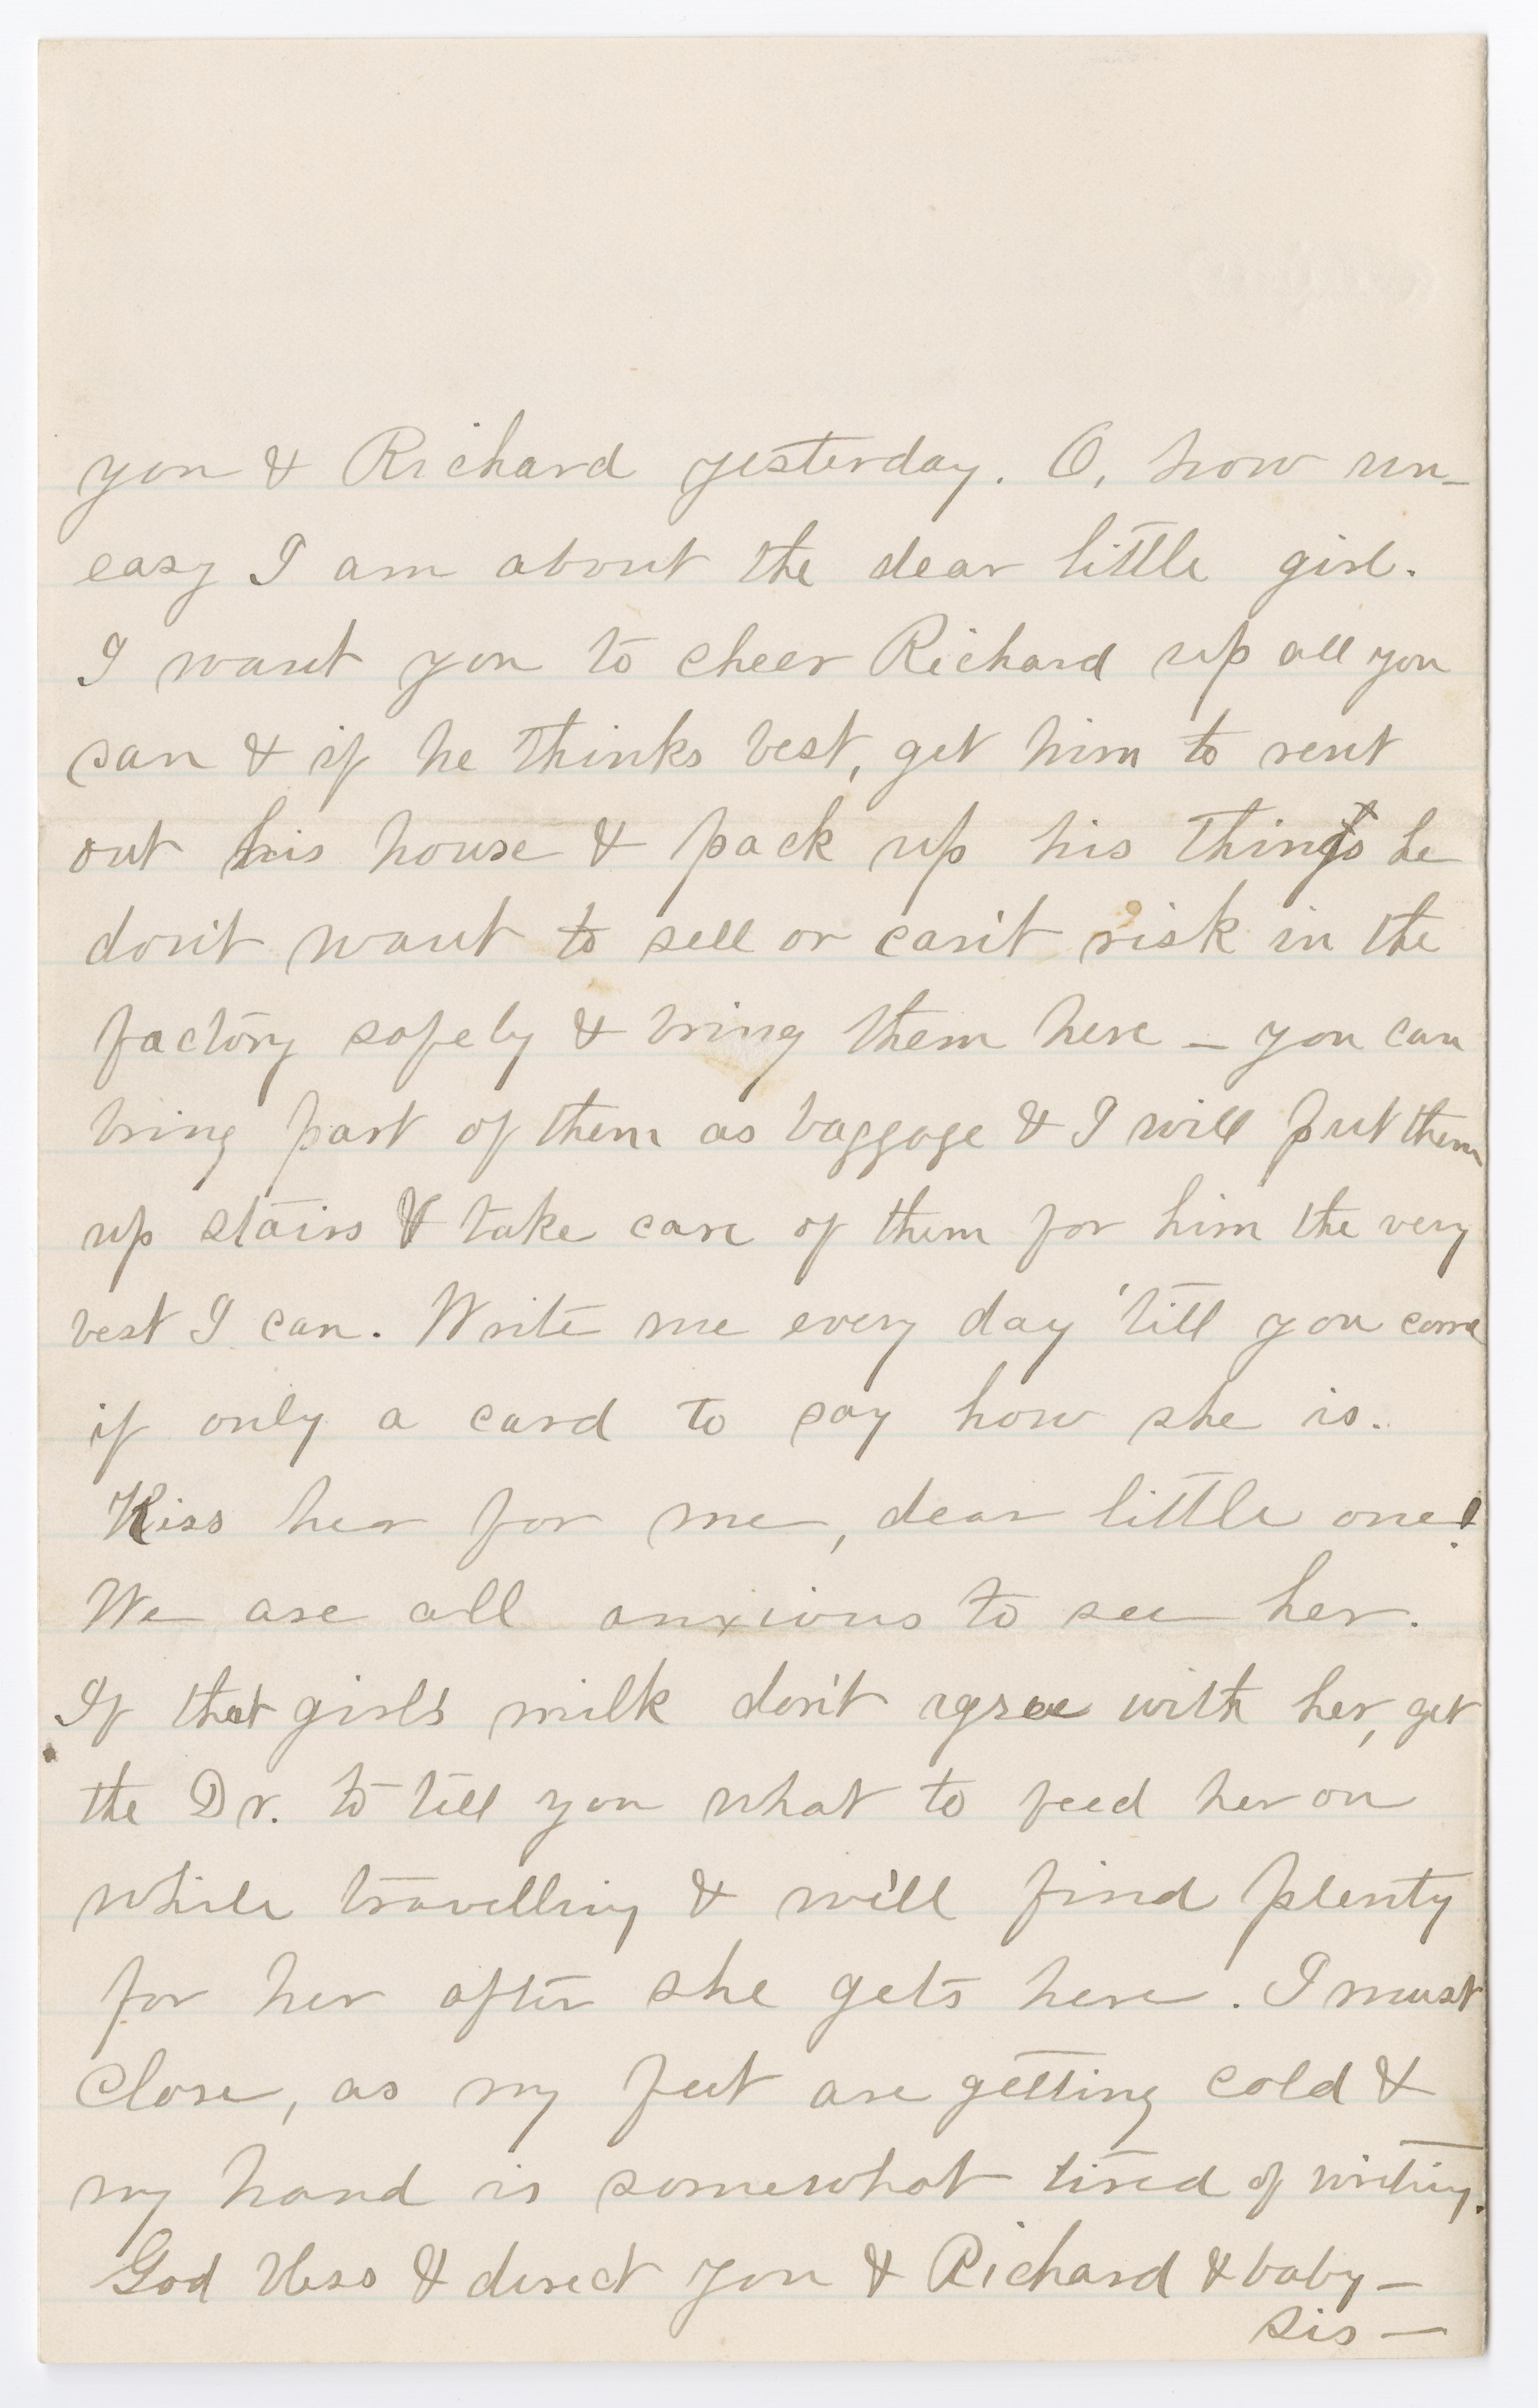 you & Richard yesterday. O, how un-
easy I am about the dear little girl.
I want you to cheer Richard up all you
can & if he thinks best, get him to rent
out his house & pack up his things he
don't want to sell or can't risk in the
factory safely & bring them here - you can
bring part of them as baggage & I will put them
up stairs & take care of them for him the very
best I can. Write me every day 'till you come
if only a card to say how she is.
Kiss her for me, dear little one!
We are all anxious to see her.
If that girl's milk don't agree with her, get
the Dr. to tell you what to feed her on
while travelling & we'll find plenty
for her after she gets here. I must
close, as my feet are getting cold &
my hand is somewhat tired of writing.
God bless & direct you & Richard & baby -
Sis -